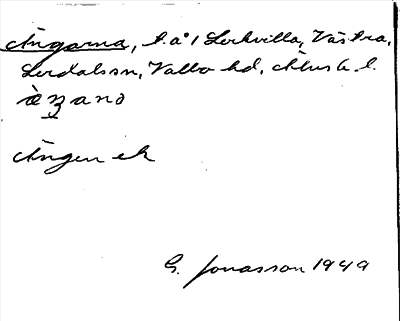 Ängarna, t.a° 1 Lerkvilla, Västra,
Lerdalssn, Valbo hd, Älvsb. l.
àȥanɒ
Ängen ek
G. Jonasson 1949